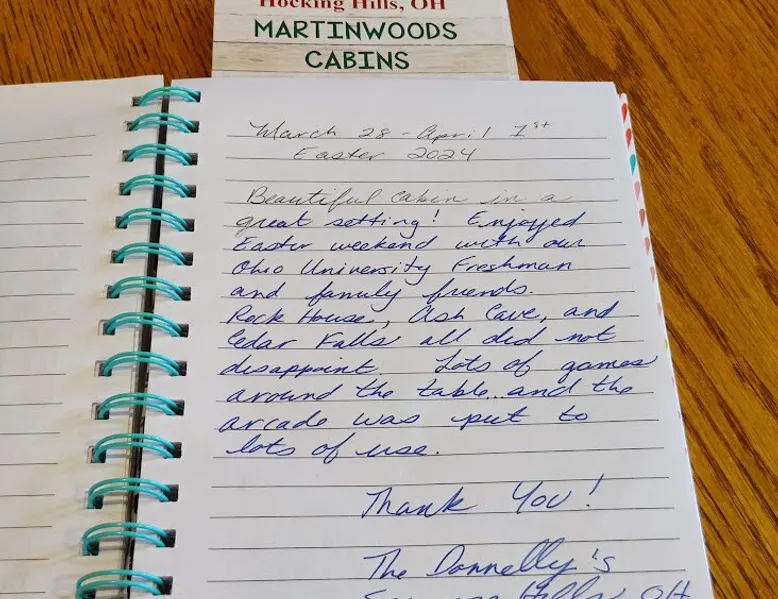 Hocking Hills, OH
MARTINWOODS
CABINS
March 28 - April 1st
Easter 2024
Beautiful cabin in a
great setting! Enjoyed
Easter weekend with our
Ohio University Freshman
and family friends.
Rock House, Ash Cave, and
Cedar Falls all did not
disappoint. Lots of games
around the table... and the
arcade was put to
lots of use.
Thank You!
The Donnelly's
Hills, OH